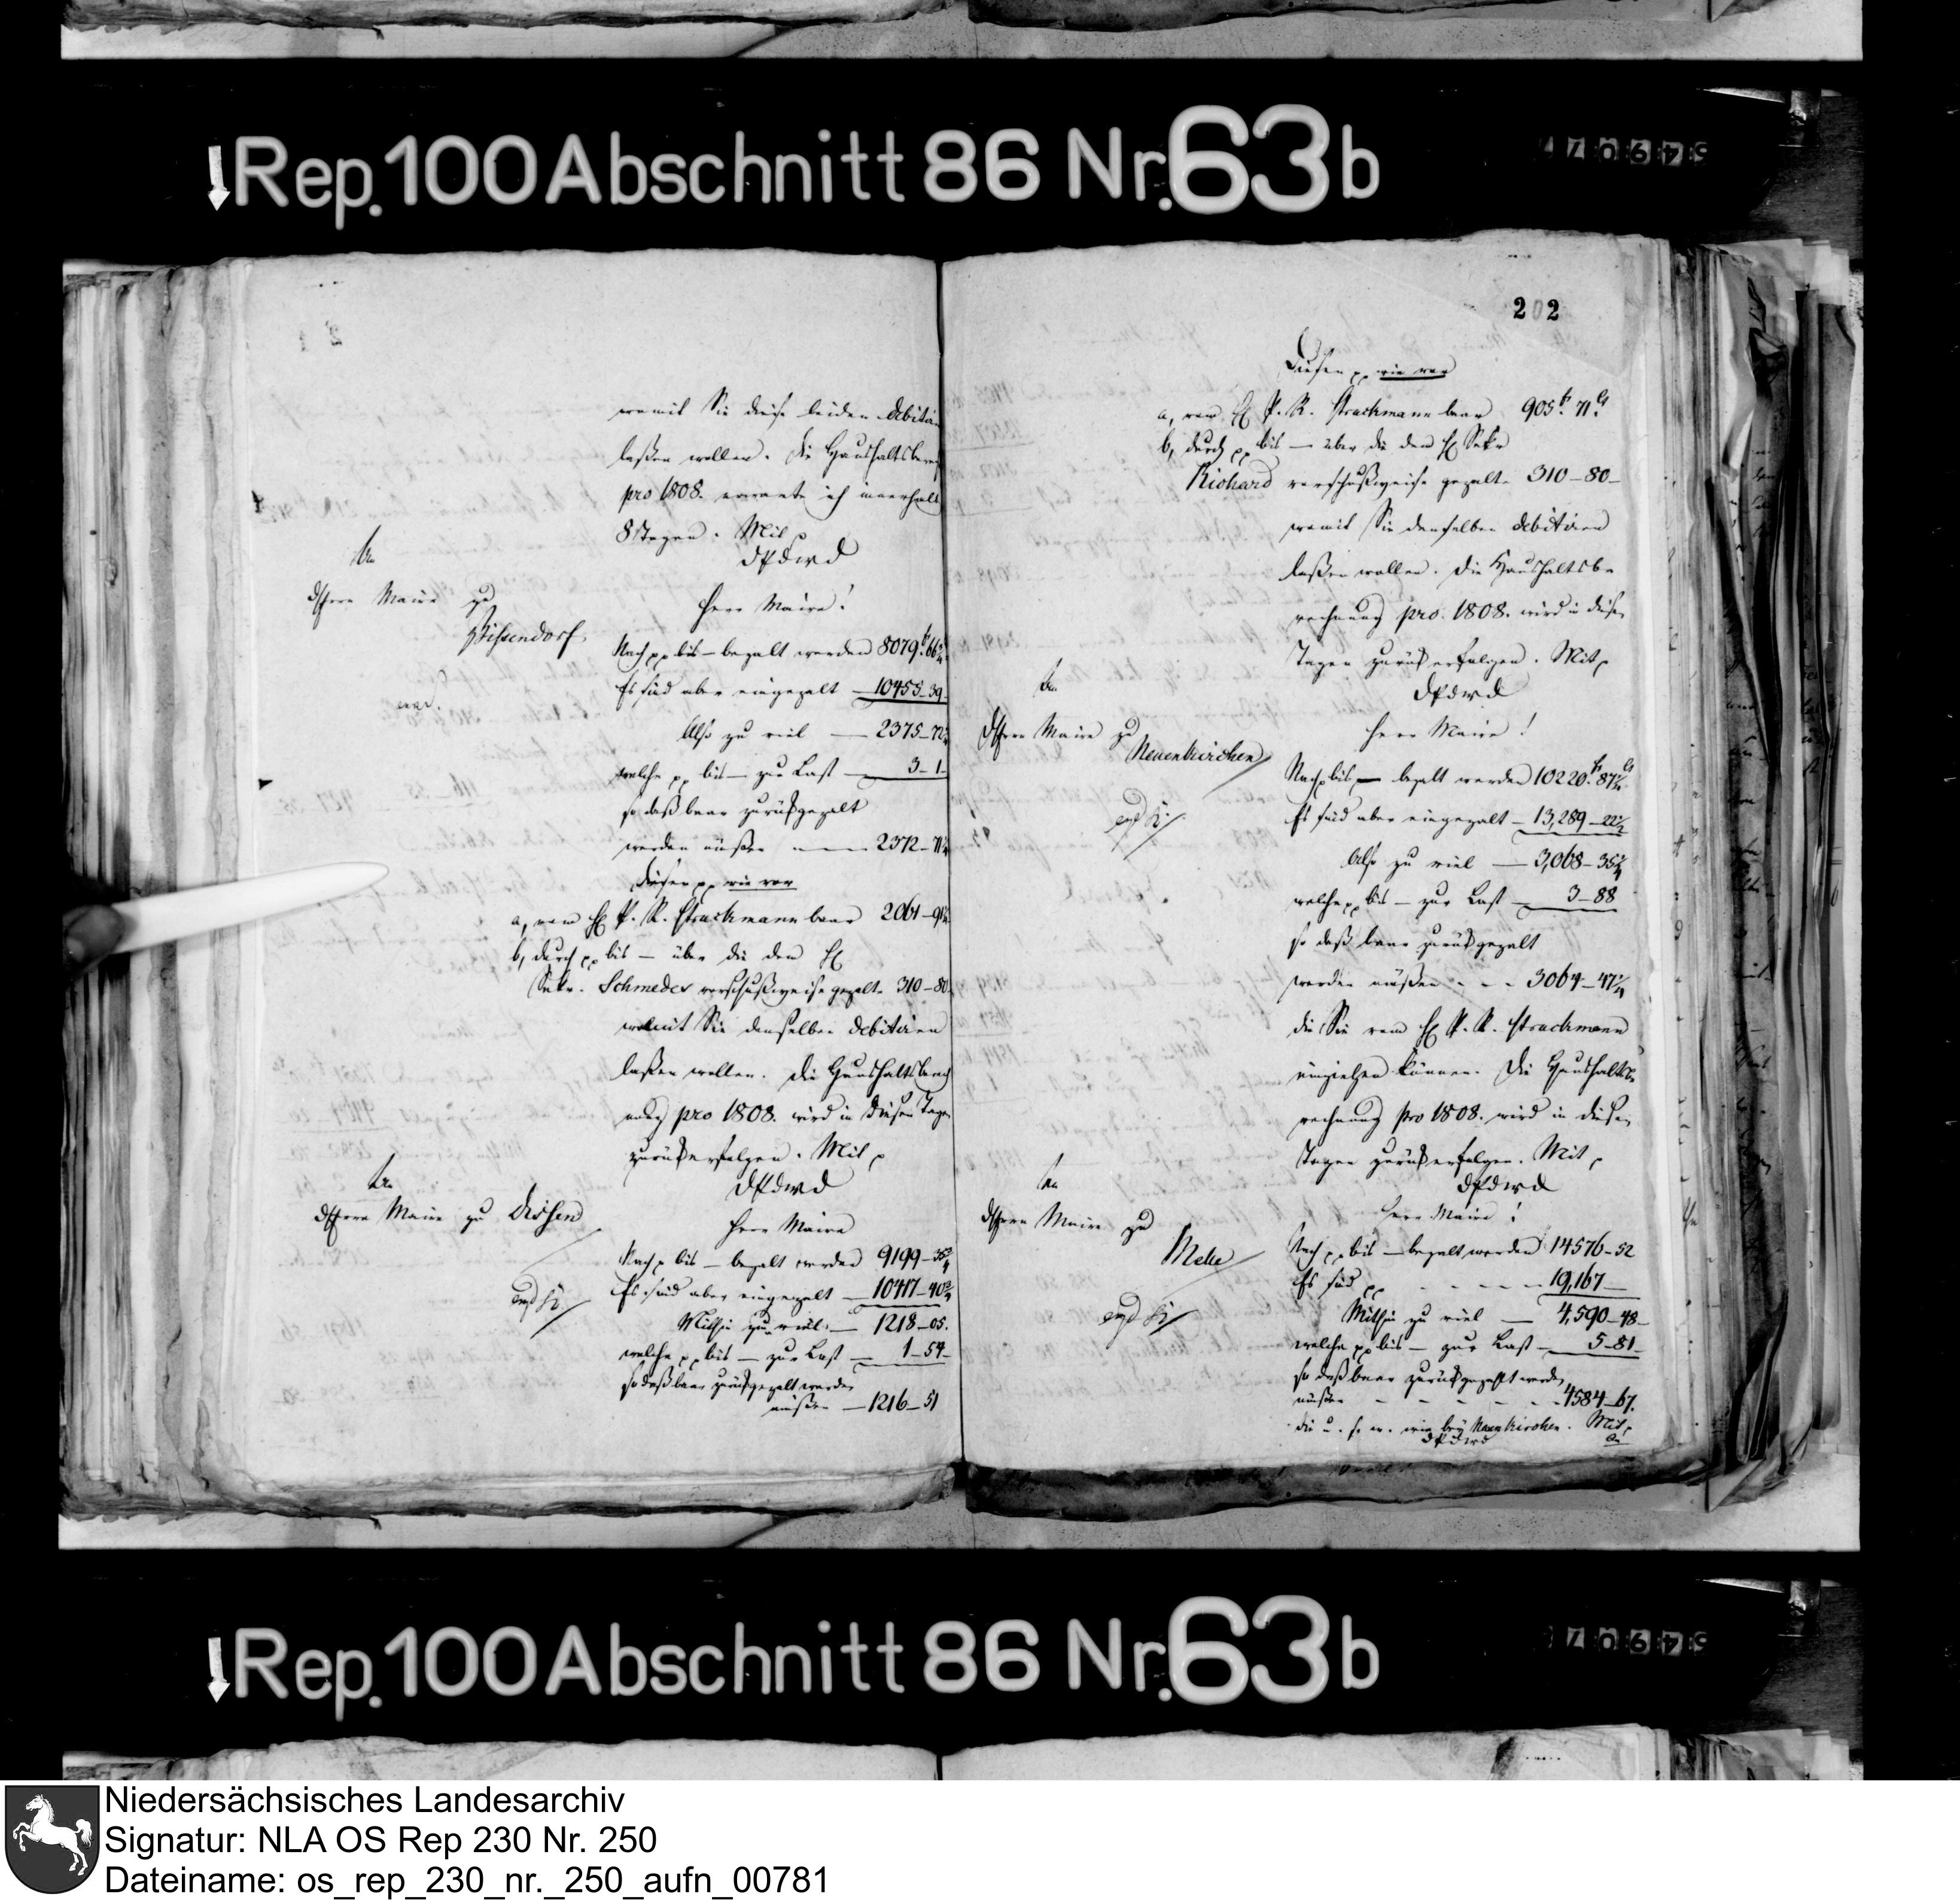 Rep. 100 Abschnitt 86 Nr. 63b
womit Sie diese beiden debitiren
laßen wollen. Die Haushaltsberech
pro 1808. erwarte ich innerhalb
8 Tagen. Mit p
DPdwd
An
d Herrn Maire zu
Bissendorf.
Herr Maire!
Nach pp bis — bezalt werden 8079 fr. 66
Es sind aber eingezalt — 10455 - 39
Also zu viel — 2375 - 72
welche pp bis — zur Last — 3 - 1
so daß baar zurükgezalt
werden müßen — 2372 - 71
Diesen pp wie vor
a, vom H P. R. Struckmann baar 2061 - 91
b, durch pp bis — über die dem H
Sekr. Schmedes vorschußweise gezalte 310 - 80
womit Sie denselben debitiren
laßen wollen. Die Haushaltsberech
nung pro 1808. wird in diesen Tagen
zurükerfolgen. Mit p
DPdwd
An
d Herrn Maire zu Dissen
Herr Maire
Nach p bis — bezalt werden 9199 - 35 3/4
Es sind aber eingezalt — 10417 - 40 3/4
Mithin zu viel — 1218 - 05.
welche pp bis — zur Last — 1 - 54
so daß baar zurükgezalt werden
müßen — 1216 - 51
202
Diesen pp wie vor
a, vom H P. R. Struckmann baar 905 fr. 71 Cs
b, durch pp bis — über die dem H Sekr
Richard vorschußweise gezalte 310 - 80 -
womit Sie denselben debitiren
laßen wollen. Die Haushaltsbe
rechnung pro. 1808. wird in diesen
Tagen zurük erfolgen. Mit p
DPdwd
An
d Herrn Maire zu
Neuenkirchen
Herr Maire!
Nach p bis — bezalt werden 10220 fr. 87 Cs
Es sind aber eingezalt — 13,289 - 22 1/2
Also zu viel — 3,068 - 35 1/4
welche pp bis — zur Last — 3 - 88
so daß baar zurükgezalt
werden müßen - - - 3064 - 47 1/4
die Sie vom H P. R. Struckmann
einziehen können. Die Haushaltsbe
rechnung pro 1808. wird in diesen
Tagen zurük erfolgen. Mit p
DPdwd
An
d Herrn Maire zu
Melle
Herr Maire!
Nach pp bis — bezalt werden 14576 - 52
Es sind pp - - - - 19,167 —
Mithin zu viel — 4,590 - 48 -
welche pp bis — zur Last — 5 - 81
so daß baar zurükgezalt werden
müßen - - - - - 4584 - 67.
die u. s. w. wie bey Neuenkirchen. Mit p
DPdwd
An
Rep. 100 Abschnitt 86 Nr. 63b
Niedersächsisches Landesarchiv
Signatur: NLA OS Rep 230 Nr. 250
Dateiname: os_rep_230_nr._250_aufn_00781